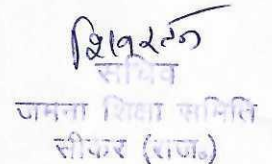 शिवरतन
सचिव
जमना शिक्षा समिति
सीकर (राज०)